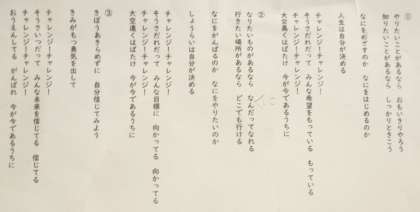 ①
やりたいことがあるなら　おもいきりやろう
知りたいことがあるなら　しっかりときこう
なにを形てすのか　なにをはじめるのか
人生は自分が決める
チャレンジ！チャレンジ！
そうさだれだって　みんな希望をもっている　もっている
チャレンジ！チャレンジ！
大空高くはばたけ　今が今であるうちに
②
なりたいものがあるなら　なんだってなれる
行きたい場所があるなら　どこでも行ける
なにをがんばるのか　なにをやりたいのか
しょうらいは自分が決める
チャレンジ！チャレンジ！
そうさだれだって　みんな目標に　向かってる　向かってる
チャレンジ！チャレンジ！
大空遠くはばたけ　今が今であるうちに
③
きぼうあきらめずに　自分信じてみよう
きみがもつ勇気を出して
チャレンジ！チャレンジ！
そうさいつだって　みんな未来を信じてる　信じてる
チャレンジ！チャレンジ！
おうえんしてる　がんばれ　今が今であるうちに